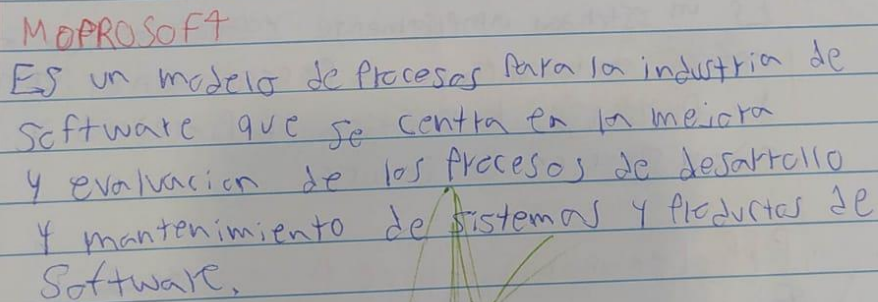 MOPROSOFT
Es un modelo de procesos para la industria de
software que se centra en la mejora
y evaluacion de los procesos de desarrollo
y mantenimiento de sistemas y productos de
software.